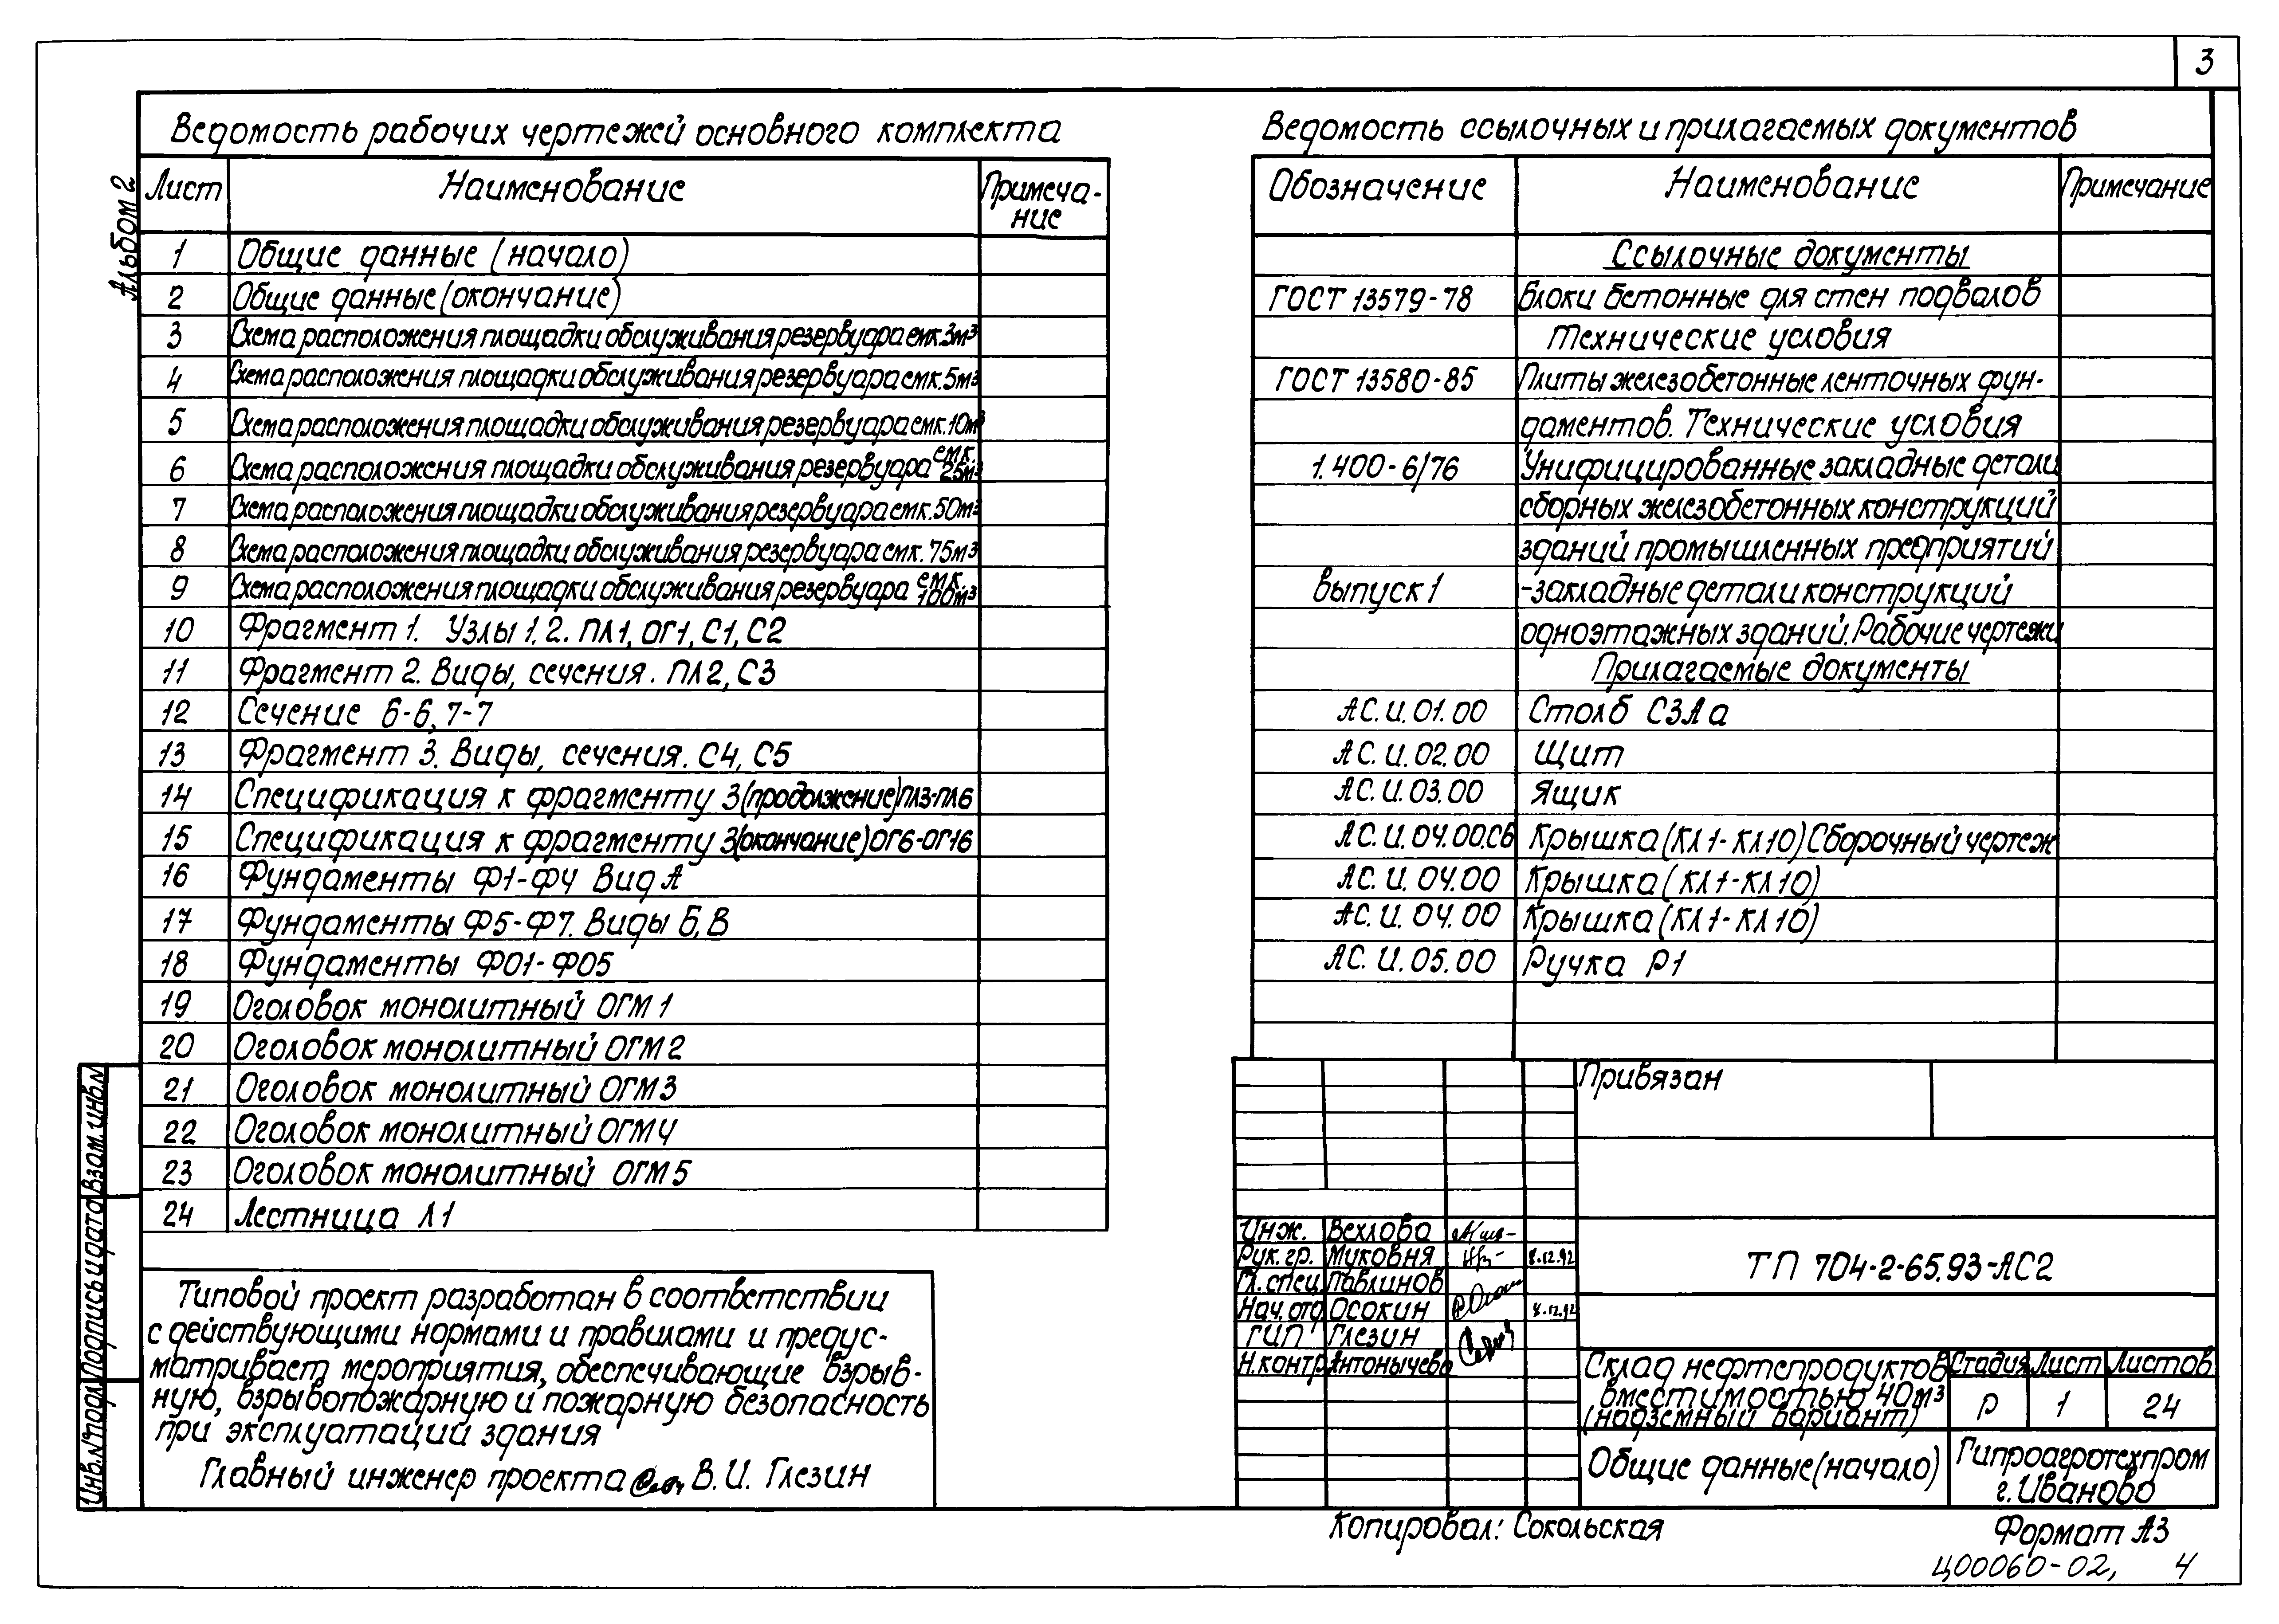 3
Альбом 2
Ведомость рабочих чертежей основного комплекта
Лист Наименование Примеча-
ние
1 Общие данные (начало)
2 Общие данные (окончание)
3 Схема расположения площадки обслуживания резервуара емк. 3м³
4 Схема расположения площадки обслуживания резервуара емк. 5м³
5 Схема расположения площадки обслуживания резервуара емк. 10м³
6 Схема расположения площадки обслуживания резервуара емк. 25м³
7 Схема расположения площадки обслуживания резервуара емк. 50м³
8 Схема расположения площадки обслуживания резервуара емк. 75м³
9 Схема расположения площадки обслуживания резервуара емк. 100м³
10 Фрагмент 1. Узлы 1, 2. ПЛ1, ОГ1, С1, С2
11 Фрагмент 2. Виды, сечения. ПЛ2, С3
12 Сечение 6-6, 7-7
13 Фрагмент 3. Виды, сечения. С4, С5
14 Спецификация к фрагменту 3 (продолжение) ПЛ3-ПЛ6
15 Спецификация к фрагменту 3 (окончание) ОГ6-ОГ16
16 Фундаменты Ф1-Ф4 Вид А
17 Фундаменты Ф5-Ф7. Виды Б, В
18 Фундаменты Ф01-Ф05
19 Оголовок монолитный ОГМ 1
20 Оголовок монолитный ОГМ 2
21 Оголовок монолитный ОГМ 3
22 Оголовок монолитный ОГМ 4
23 Оголовок монолитный ОГМ 5
24 Лестница Л1
Типовой проект разработан в соответствии
с действующими нормами и правилами и предус-
матривает мероприятия, обеспечивающие взрыв-
ную, взрывопожарную и пожарную безопасность
при эксплуатации здания
Главный инженер проекта В. И. Глезин
Взам. инв. №
Подпись и дата
Инв. № подл.
Ведомость ссылочных и прилагаемых документов
Обозначение Наименование Примечание
Ссылочные документы
ГОСТ 13579-78 Блоки бетонные для стен подвалов
Технические условия
ГОСТ 13580-85 Плиты железобетонные ленточных фун-
даментов. Технические условия
1.400-6/76 Унифицированные закладные детали
сборных железобетонных конструкций
зданий промышленных предприятий
выпуск 1 -закладные детали конструкций
одноэтажных зданий. Рабочие чертежи
Прилагаемые документы
АС. И. 01. 00 Столб С3Ла
АС. И. 02. 00 Щит
АС. И. 03. 00 Ящик
АС. И. 04. 00.СБ Крышка (КЛ1-КЛ10) Сборочный чертеж
АС. И. 04. 00 Крышка (КЛ1-КЛ10)
АС. И. 04. 00 Крышка (КЛ1-КЛ10)
АС. И. 05. 00 Ручка Р1
Привязан
Инж. Вехлова
Рук. гр. Муковня 8.12.92
Гл. спец. Павлинов
Нач. отд. Осокин 8.12.92
ГИП Глезин
Н. контр. Антонычева
ТП 704-2-65.93-АС2
Склад нефтепродуктов
вместимостью 40м³
(надземный вариант)
Стадия Лист Листов
Р 1 24
Общие данные (начало)
Гипроагротехпром
г. Иваново
Копировал: Сокольская
Формат А3
Ц00060-02, 4